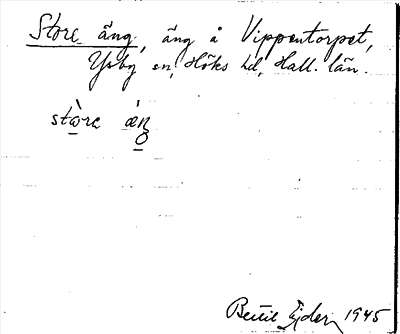 Store äng, äng å Vippentorpet,
Ysby sn, Höks hd, Hall. län.
stòre ǽŋ
Bertil Ejder, 1945